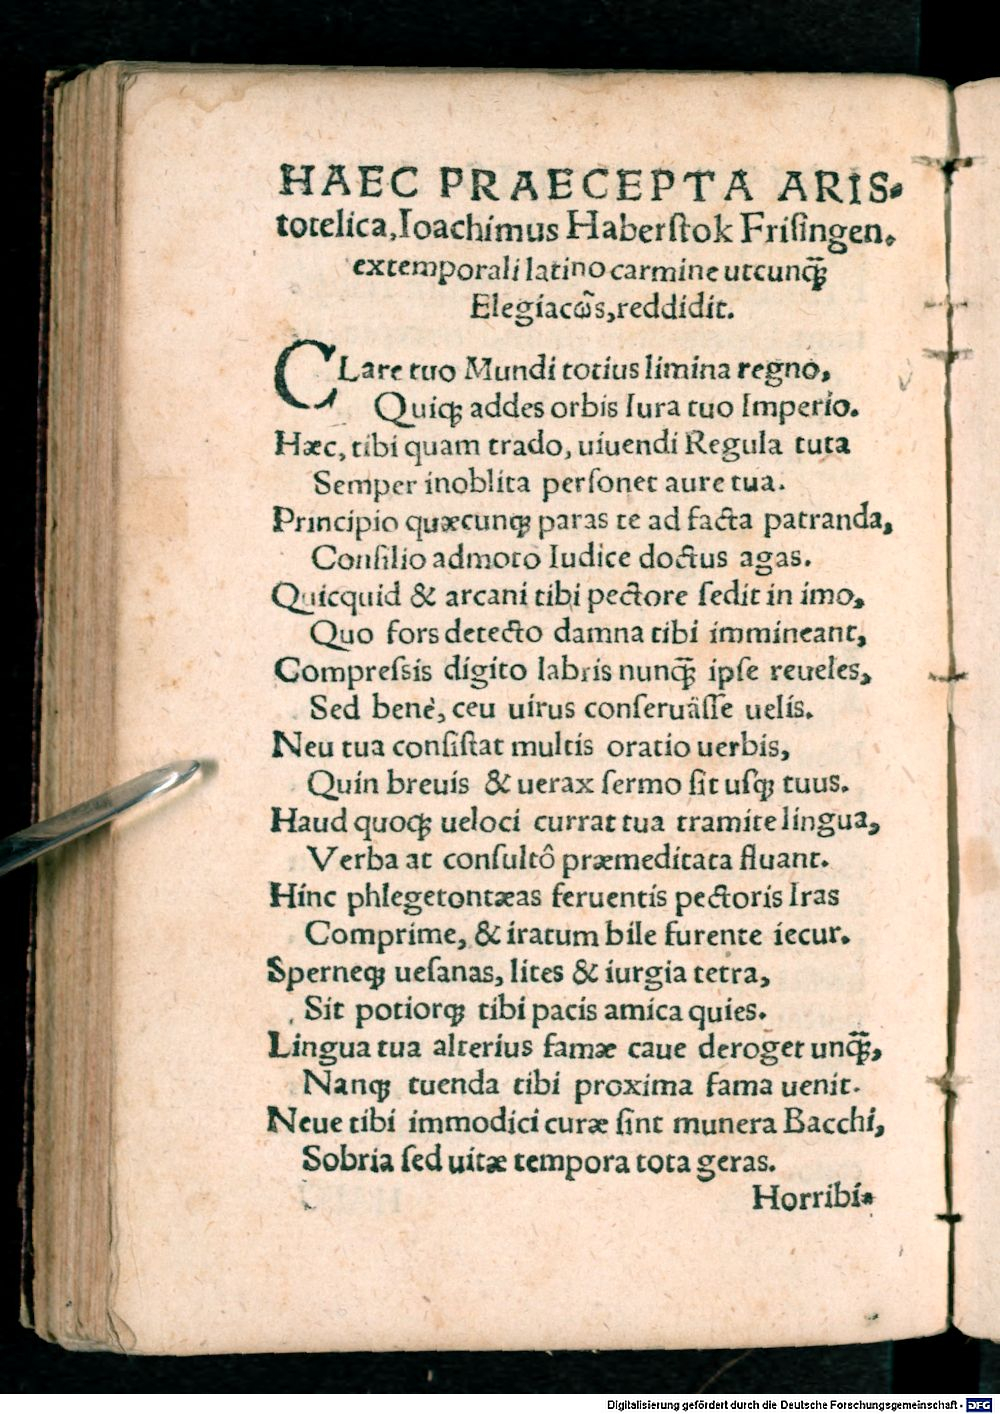 HAEC PRAECEPTA ARIS-
totelica, Ioachimus Haberſtok Friſingen.
extemporali latino carmine utcunq̃ꝫ
Elegiacω̃s, reddidit.
CLare tuo Mundi totius limina regno,
Quiqꝫ addes orbis Iura tuo Imperio.
Hæc, tibi quam trado, uiuendi Regula tuta
Semper inoblita perſonet aure tua.
Principio quæcunqꝫ paras te ad facta patranda,
Conſilio admoto Iudice doctus agas.
Quicquid & arcani tibi pectore ſedit in imo,
Quo fors detecto damna tibi immineant,
Compreſsis digito labris nunq̃ꝫ ipſe reueles,
Sed benè, ceu uirus conſeruâſſe uelis.
Neu tua conſiſtat multis oratio uerbis,
Quin breuis & uerax ſermo ſit uſqꝫ tuus.
Haud quoqꝫ ueloci currat tua tramite lingua,
Verba at conſultô præmeditata fluant.
Hinc phlegetontæas feruentis pectoris Iras
Comprime, & iratum bile furente iecur.
Sperneqꝫ ueſanas, lites & iurgia tetra,
Sit potiorqꝫ tibi pacis amica quies.
Lingua tua alterius famæ caue deroget unq̃ꝫ,
Nanqꝫ tuenda tibi proxima fama uenit.
Neue tibi immodici curæ ſint munera Bacchi,
Sobria ſed uitæ tempora tota geras.
Horribi-
Digitalisierung gefördert durch die Deutsche Forschungsgemeinschaft - DFG